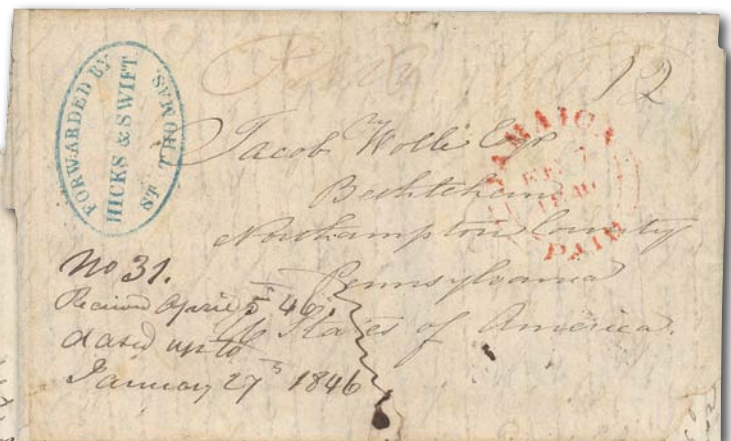 FORWARDED BY
HICKS & SWIFT
ST THOMAS
12
JAMAICA
PAID
Jacob Wolle Esqr
Bethlehem
Northampton County
Pennsylvania
U States of America.
No 31.
Received April 5th 46.
dated up to
January 27th 1846